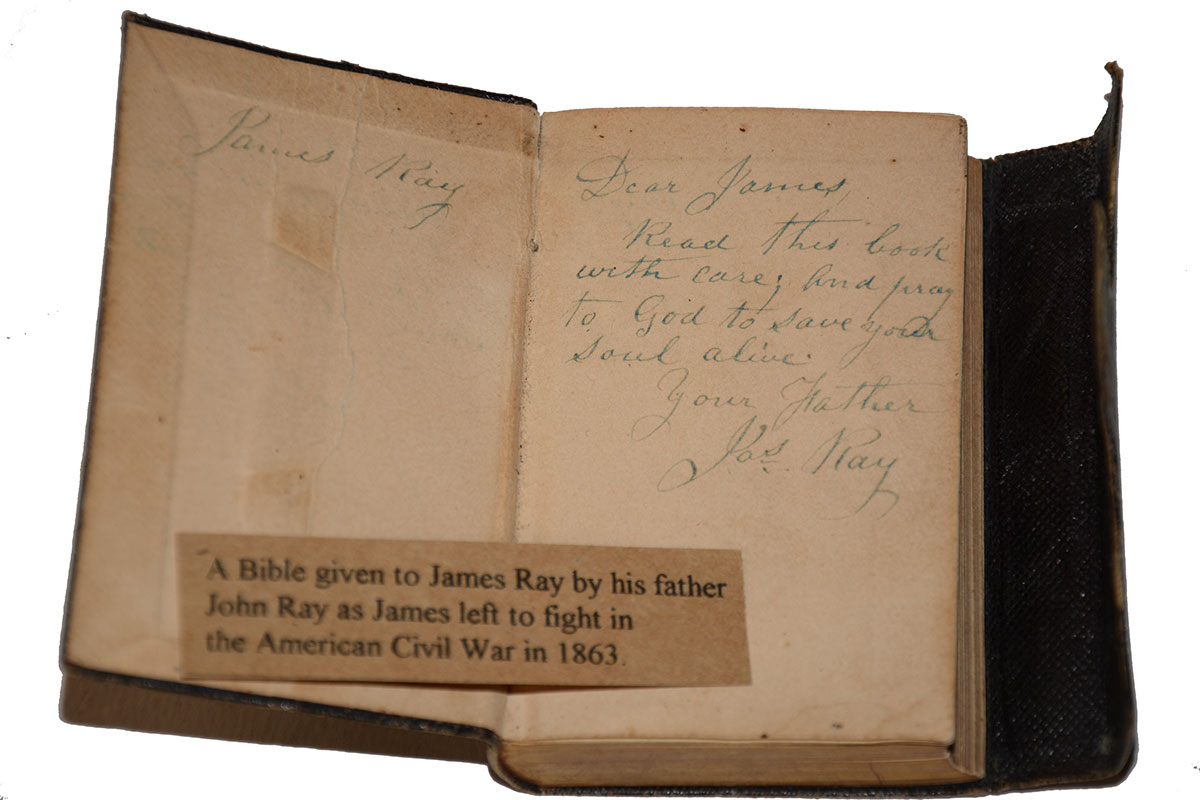 James Ray
Dear James,
Read this book
with care; and pray
to God to save your
soul alive.
Your Father
Jas Ray
A Bible given to James Ray by his father
John Ray as James left to fight in
the American Civil War in 1863.